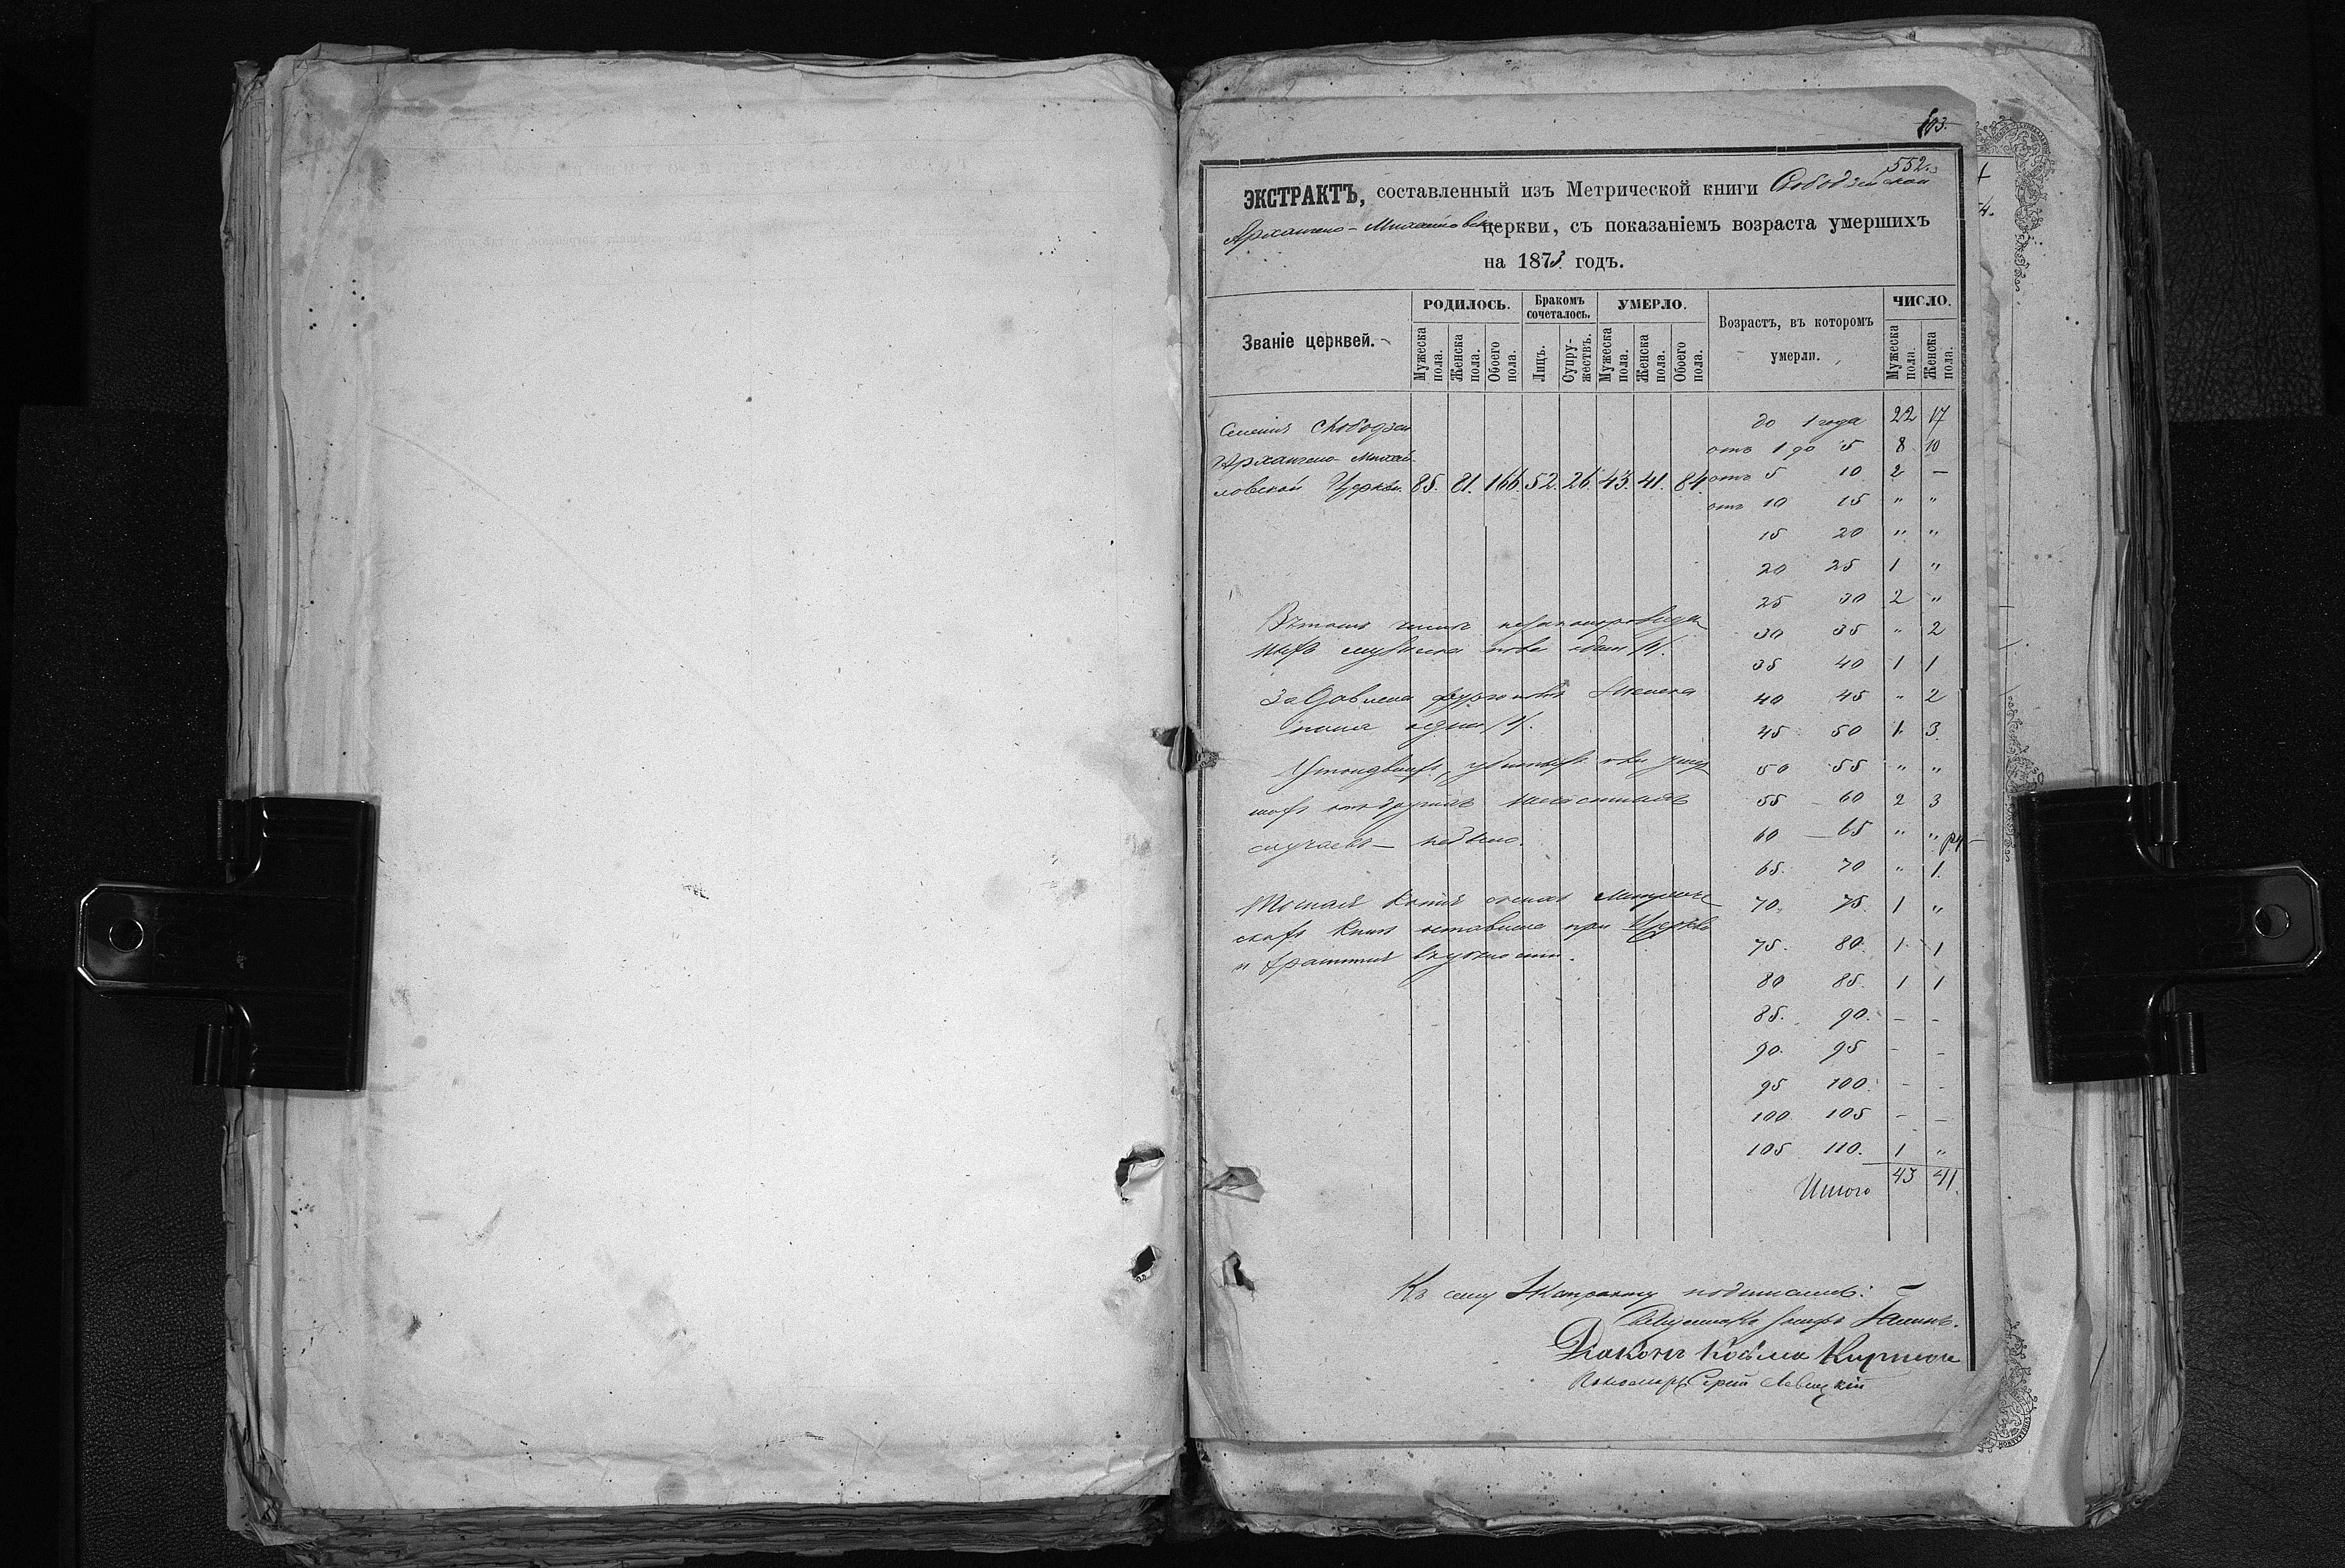 103.
552.
ЭКСТРАКТЪ, составленный изъ Метрической книги Слободзейской
Архангело-Михайловск церкви, съ показаніемъ возраста умершихъ
на 1873 годъ.
Званіе церквей.
РОДИЛОСЬ.
Мужеска пола.
Женска пола.
Обоего пола.
Бракомъ сочеталось.
Лицъ.
Супружествъ.
УМЕРЛО.
Мужеска пола.
Женска пола.
Обоего пола.
Возрастъ, въ которомъ
умерли.
ЧИСЛО.
Мужеска пола.
Женска пола.
Селенія Слободзеи
Архангело-Михай-
ловской Церкви. 85. 81. 166. 52. 26. 43. 41. 84.
до 1 года 22 17
отъ 1 до 5 8 10
отъ 5 10 2 —
отъ 10 15 " "
15 20 " "
20 25 1 "
25 30 2 "
30 35 " 2
35 40 1 1
40 45 " 2
45 50 1. 3.
50 55 " "
55 — 60 2 3
60 — 65 " "
65. 70 " 1.
70. 75. 1 "
75. 80. 1. 1
80 85. 1 1
85. 90. - -
90. 95 - -
95 100. - -
100 105 - -
105 110. 1 "
Итого 43 41.
Въ томъ числѣ
мужеска пола одинъ /1/.
Задавлена женска
пола одна /1/.
случаевъ — небыло.
Точная копія съ сихъ Метриче-
скихъ книгъ оставлена при Церкви
и хранится въ цѣлости.
Къ сему Экстракту подписались:
Священникъ
Діаконъ Косьма
Пономарь Левицкій